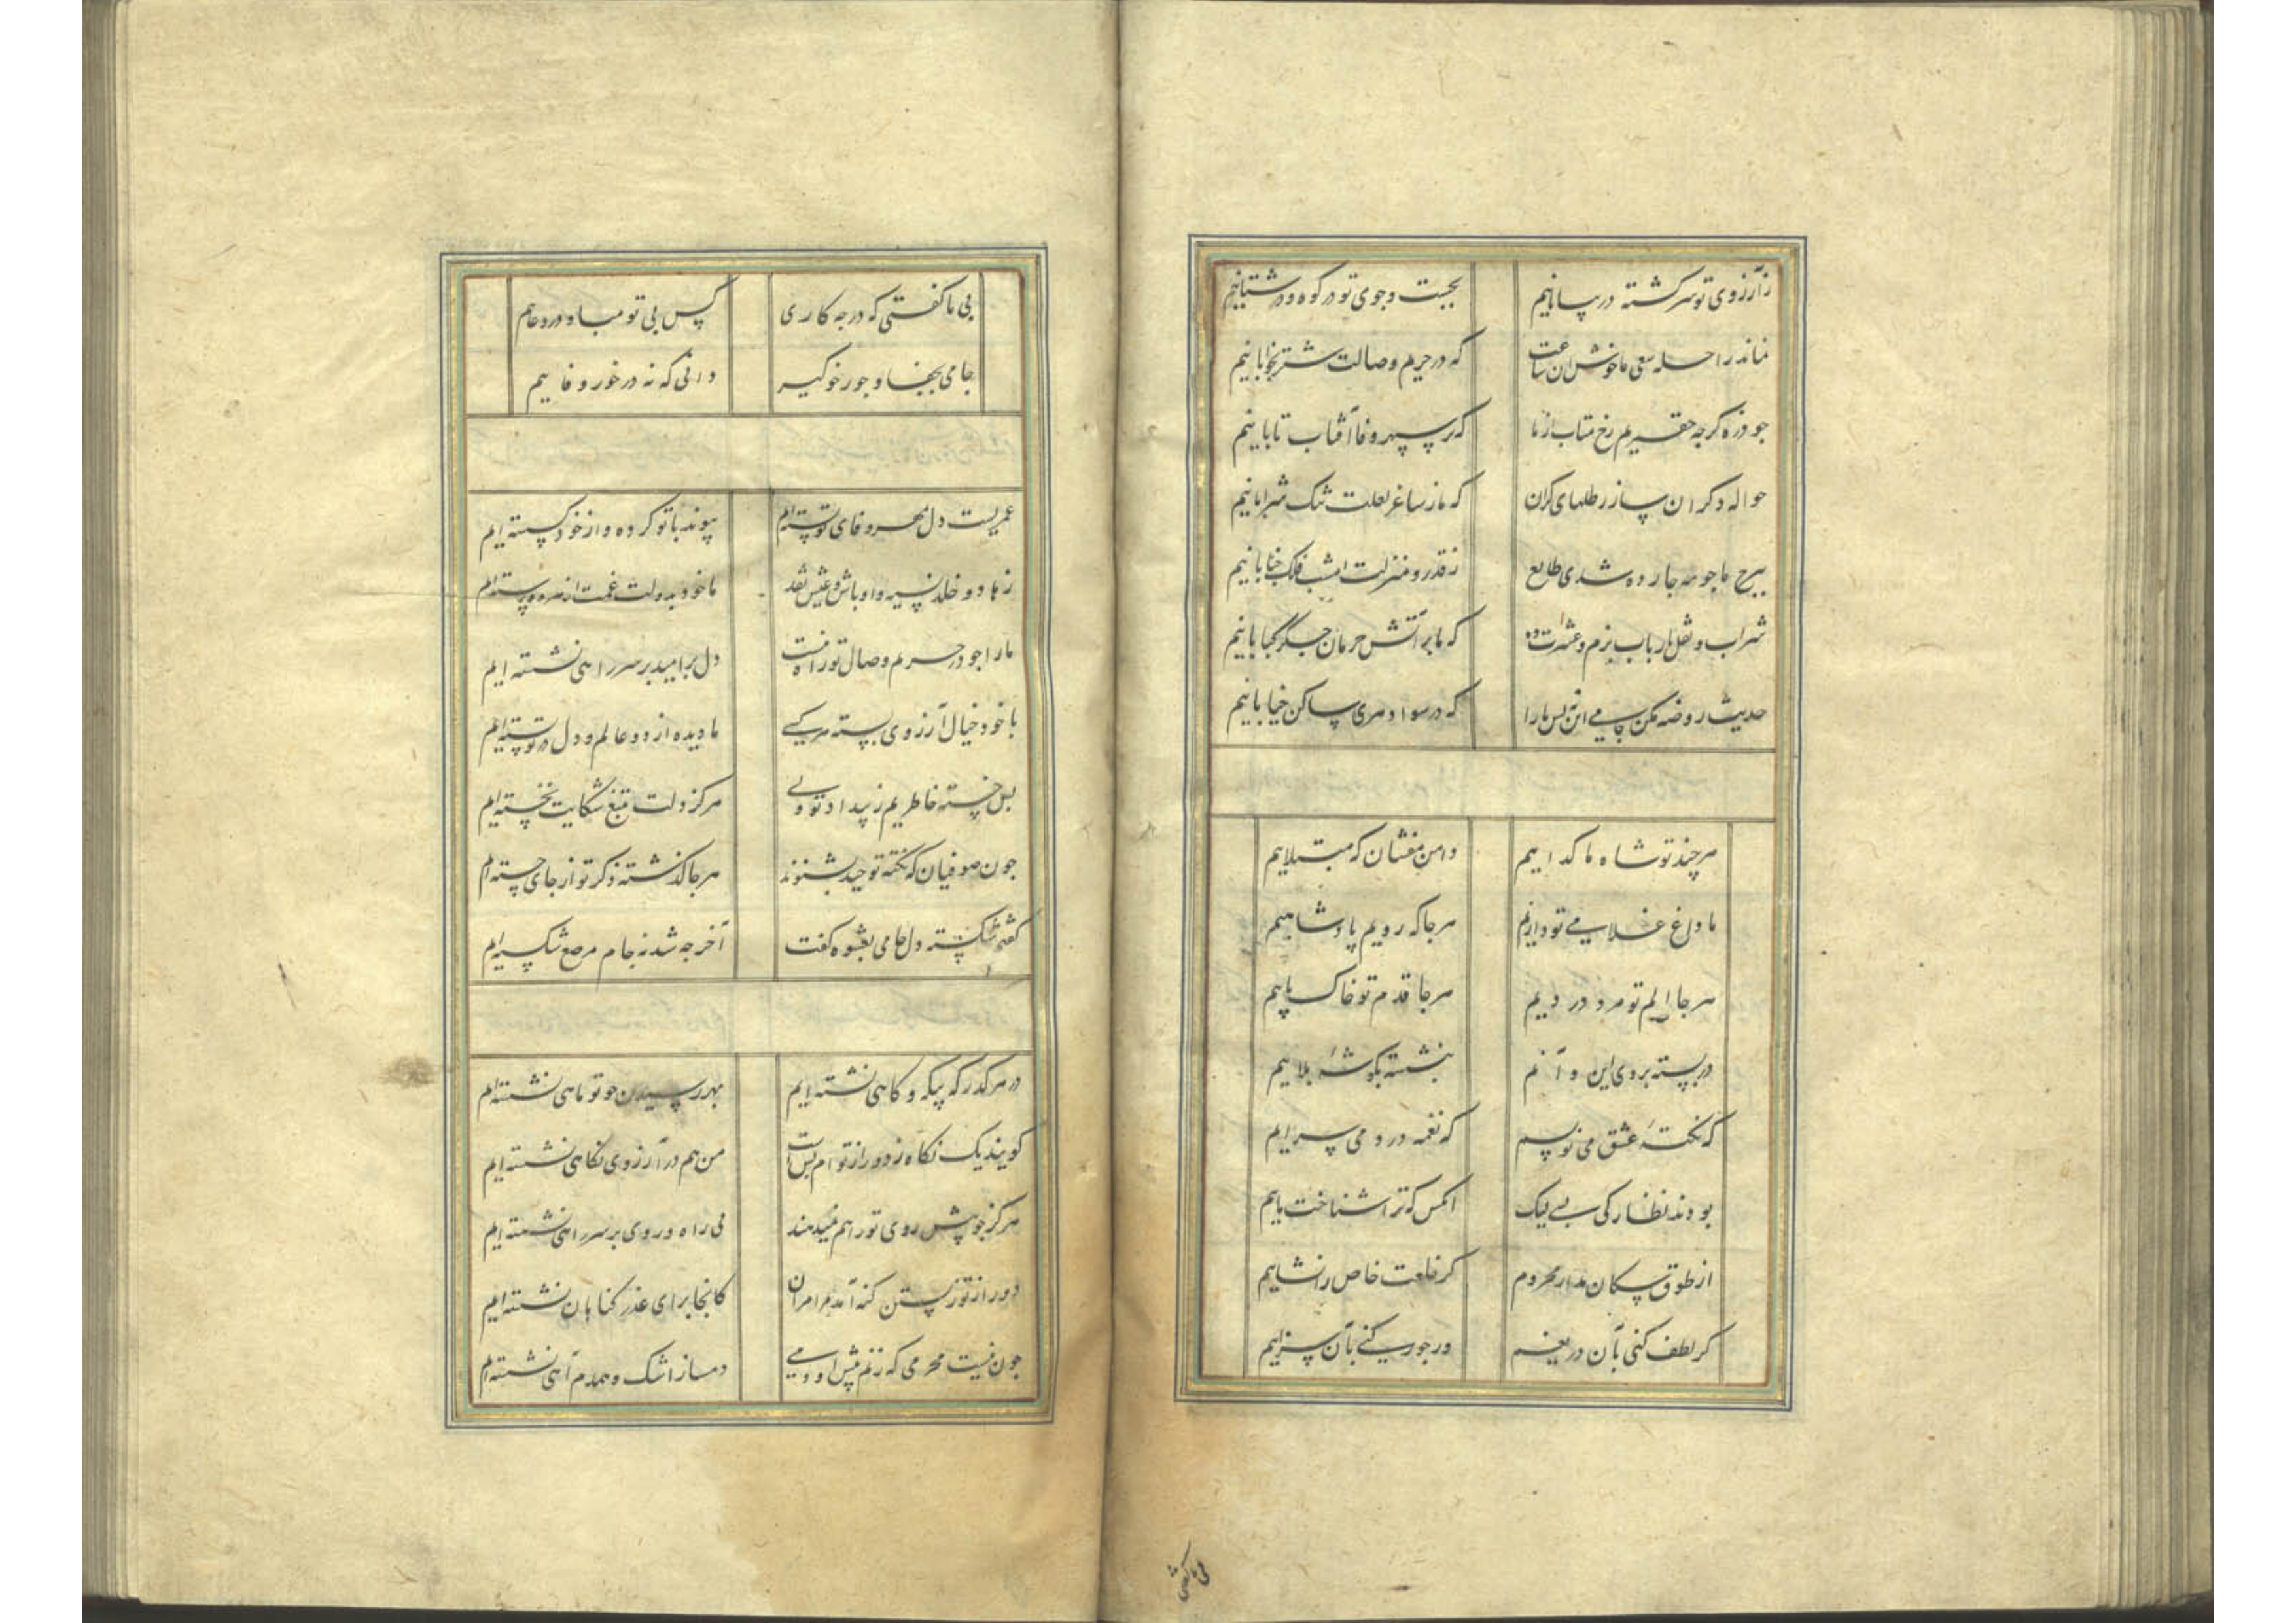 زآرزوی تو سرکشته در بیابانیم بجست وجوی تو در کوه و در شتابانیم
نماند راحله سعی ما خوش ان ساعت که در حریم وصالت شتر بخوابانیم
جو ذره کرجه حقیریم رخ متاب از ما که بر سپهر وفا آفتاب تابانیم
حواله دکران ساز رطلهای کران که ما ز ساغر لعلت تنک شرابانیم
ببرج ما جو مه جارده شدی طالع ز قدر و منزلت امشب فلک جنابانیم
شراب و نقل بارباب بزم و عشرت ده که ما بر آتش حرمان جکر کبابانیم
حدیث روضه مکن جامی این بس ما را که در سواد هری ساکن خیابانیم
هرچند تو شاه ما کداییم دامن مفشان که مبتلاییم
ما داغ غلامی تو داریم هرجا که رویم پادشاهیم
هرجا الم تو مرد دردیم هرجا قدم تو خاک پاییم
در بسته بروی این و آنم بنشسته بکوشهٔ بلاییم
که نکتهٔ عشق می نویسم که نغمه درد می سراییم
بودند نظارکی بسی لیک انکس که ترا شناخت ماییم
از طوق سکان مدار محروم کر خلعت خاص را نشاییم
کر لطف کنی بآن دریغیم ور جور کنی بآن سزاییم
بی ما کفتی
بی ما کفتی که درجه کاری کس بی تو مباد در دعاییم
جامی بجفا و جور خو کیر دانی که نه درخور وفاییم
عمریست دل بمهر و فای تو بسته ایم پیوند با تو کرده و از خود کسسته ایم
زهاد و خلد نسیه و اوباش و عیش نقد ما خود بدولت غمت از هر دو رسته ایم
ما را جو در حریم وصال تو راه نیست دل بر امید بر سر راهی نشسته ایم
با خود خیال آرزوی بسته هر کسی ما دیده از دو عالم و دل در تو بسته ایم
بس خسته خاطریم ز بیداد تو ولی هرکز دلت بتیغ شکایت نخسته ایم
جون صوفیان که نکته توحید بشنوند هرجا کذشته ذکر تو از جای جسته ایم
کفتم شکسته دل جامی بعشوه کفت آخر جه شد نه جام مرصع شکسته ایم
در هر کذر که بیکه و کاهی نشسته ایم بهر رسیدن جو تو ماهی نشسته ایم
کویند یک نکاه ز دور از تو ام بس است من هم در آرزوی نکاهی نشسته ایم
هرکز جو پیش روی تو راهم نمیدهند بی راه و روی بر سر راهی نشسته ایم
دور از تو زیستن کنه آمد مرا مران کانجا برای عذر کناهان نشسته ایم
جون نیست محرمی که زنم پیش او دمی دمساز اشک و همدم آهی نشسته ایم